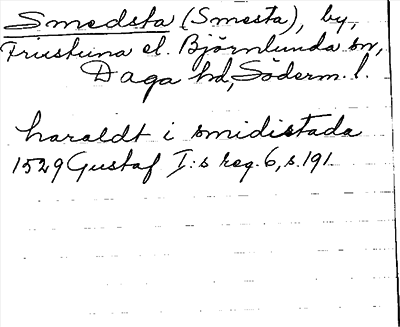 Smedsta (Smesta), by,
Frustuna el. Björnlunda sn,
Daga hd, Söderm. l.
haraldt i smidistada
1529 Gustaf I:s reg. 6, s. 191.